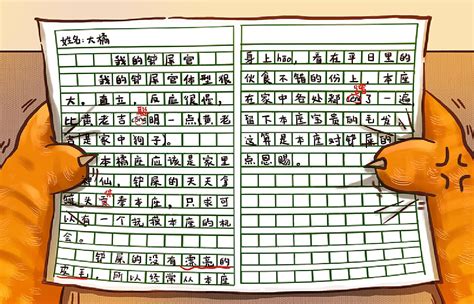 姓名:大橘
我的铲屎官
我的铲屎官体型很
大，直立，反应很慢，
聪
比黄老吉cōng明一点(黄老
吉是家中狗子)。
本橘座应该是家里
神仙，铲屎的天天拿
供
罐头贡着本座，只求可
以有一个抚摸本座的机
会。
铲屎的没有漂亮的
皮毛，所以经常从本座
身上hāo，看在平日里的
伙食不错的份上，本座
蹭
在家中各处都cèng了一遍
留下本座宝贵的毛发，
这算是本座对铲屎的一
点恩赐。